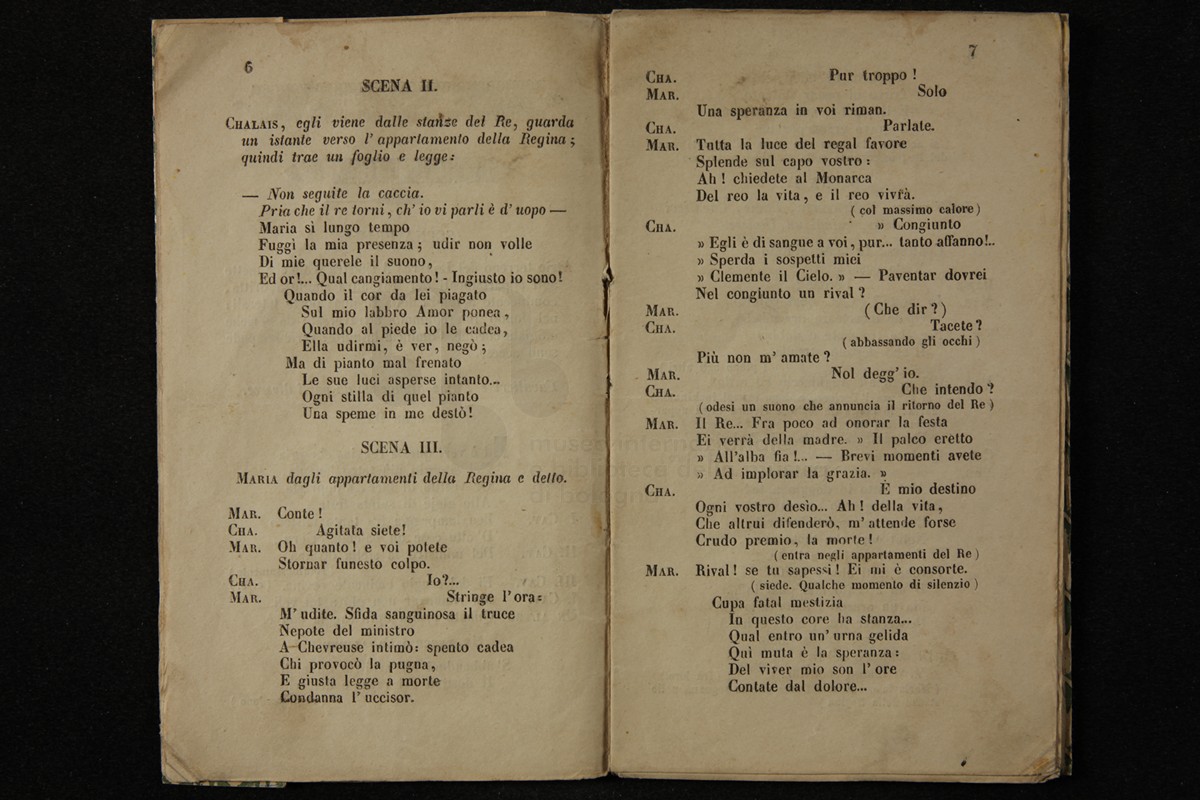 6
SCENA II.
CHALAIS, egli viene dalle stanze del Re, guarda
un istante verso l' appartamento della Regina;
quindi trae un foglio e legge:
— Non seguite la caccia.
Pria che il re torni, ch' io vi parli è d' uopo —
Maria sì lungo tempo
Fuggì la mia presenza; udir non volle
Di mie querele il suono,
Ed or!... Qual cangiamento! - Ingiusto io sono!
Quando il cor da lei piagato
Sul mio labbro Amor ponea,
Quando al piede io le cadea,
Ella udirmi, è ver, negò;
Ma di pianto mal frenato
Le sue luci asperse intanto...
Ogni stilla di quel pianto
Una speme in me destò!
SCENA III.
MARIA dagli appartamenti della Regina e detto.
MAR. Conte!
CHA. Agitata siete!
MAR. Oh quanto! e voi potete
Stornar funesto colpo.
CHA. Io?...
MAR. Stringe l'ora:
M' udite. Sfida sanguinosa il truce
Nepote del ministro
A Chevreuse intimò: spento cadea
Chi provocò la pugna,
E giusta legge a morte
Condanna l' uccisor.
7
CHA. Pur troppo!
MAR. Solo
Una speranza in voi riman.
CHA. Parlate.
MAR. Tutta la luce del regal favore
Splende sul capo vostro:
Ah! chiedete al Monarca
Del reo la vita, e il reo vivrà.
(col massimo calore)
CHA. » Congiunto
» Egli è di sangue a voi, pur... tanto affanno!..
» Sperda i sospetti miei
» Clemente il Cielo. » — Paventar dovrei
Nel congiunto un rival?
MAR. (Che dir?)
CHA. Tacete?
(abbassando gli occhi)
Più non m' amate?
MAR. Nol degg' io.
CHA. Che intendo?
(odesi un suono che annuncia il ritorno del Re)
MAR. Il Re... Fra poco ad onorar la festa
Ei verrà della madre. » Il palco eretto
» All'alba fia!... — Brevi momenti avete
» Ad implorar la grazia. »
CHA. È mio destino
Ogni vostro desìo... Ah! della vita,
Che altrui difenderò, m' attende forse
Crudo premio, la morte!
(entra negli appartamenti del Re)
MAR. Rival! se tu sapessi! Ei mi è consorte.
(siede. Qualche momento di silenzio)
Cupa fatal mestizia
In questo core ha stanza...
Qual entro un' urna gelida
Quì muta è la speranza:
Del viver mio son l' ore
Contate dal dolore...